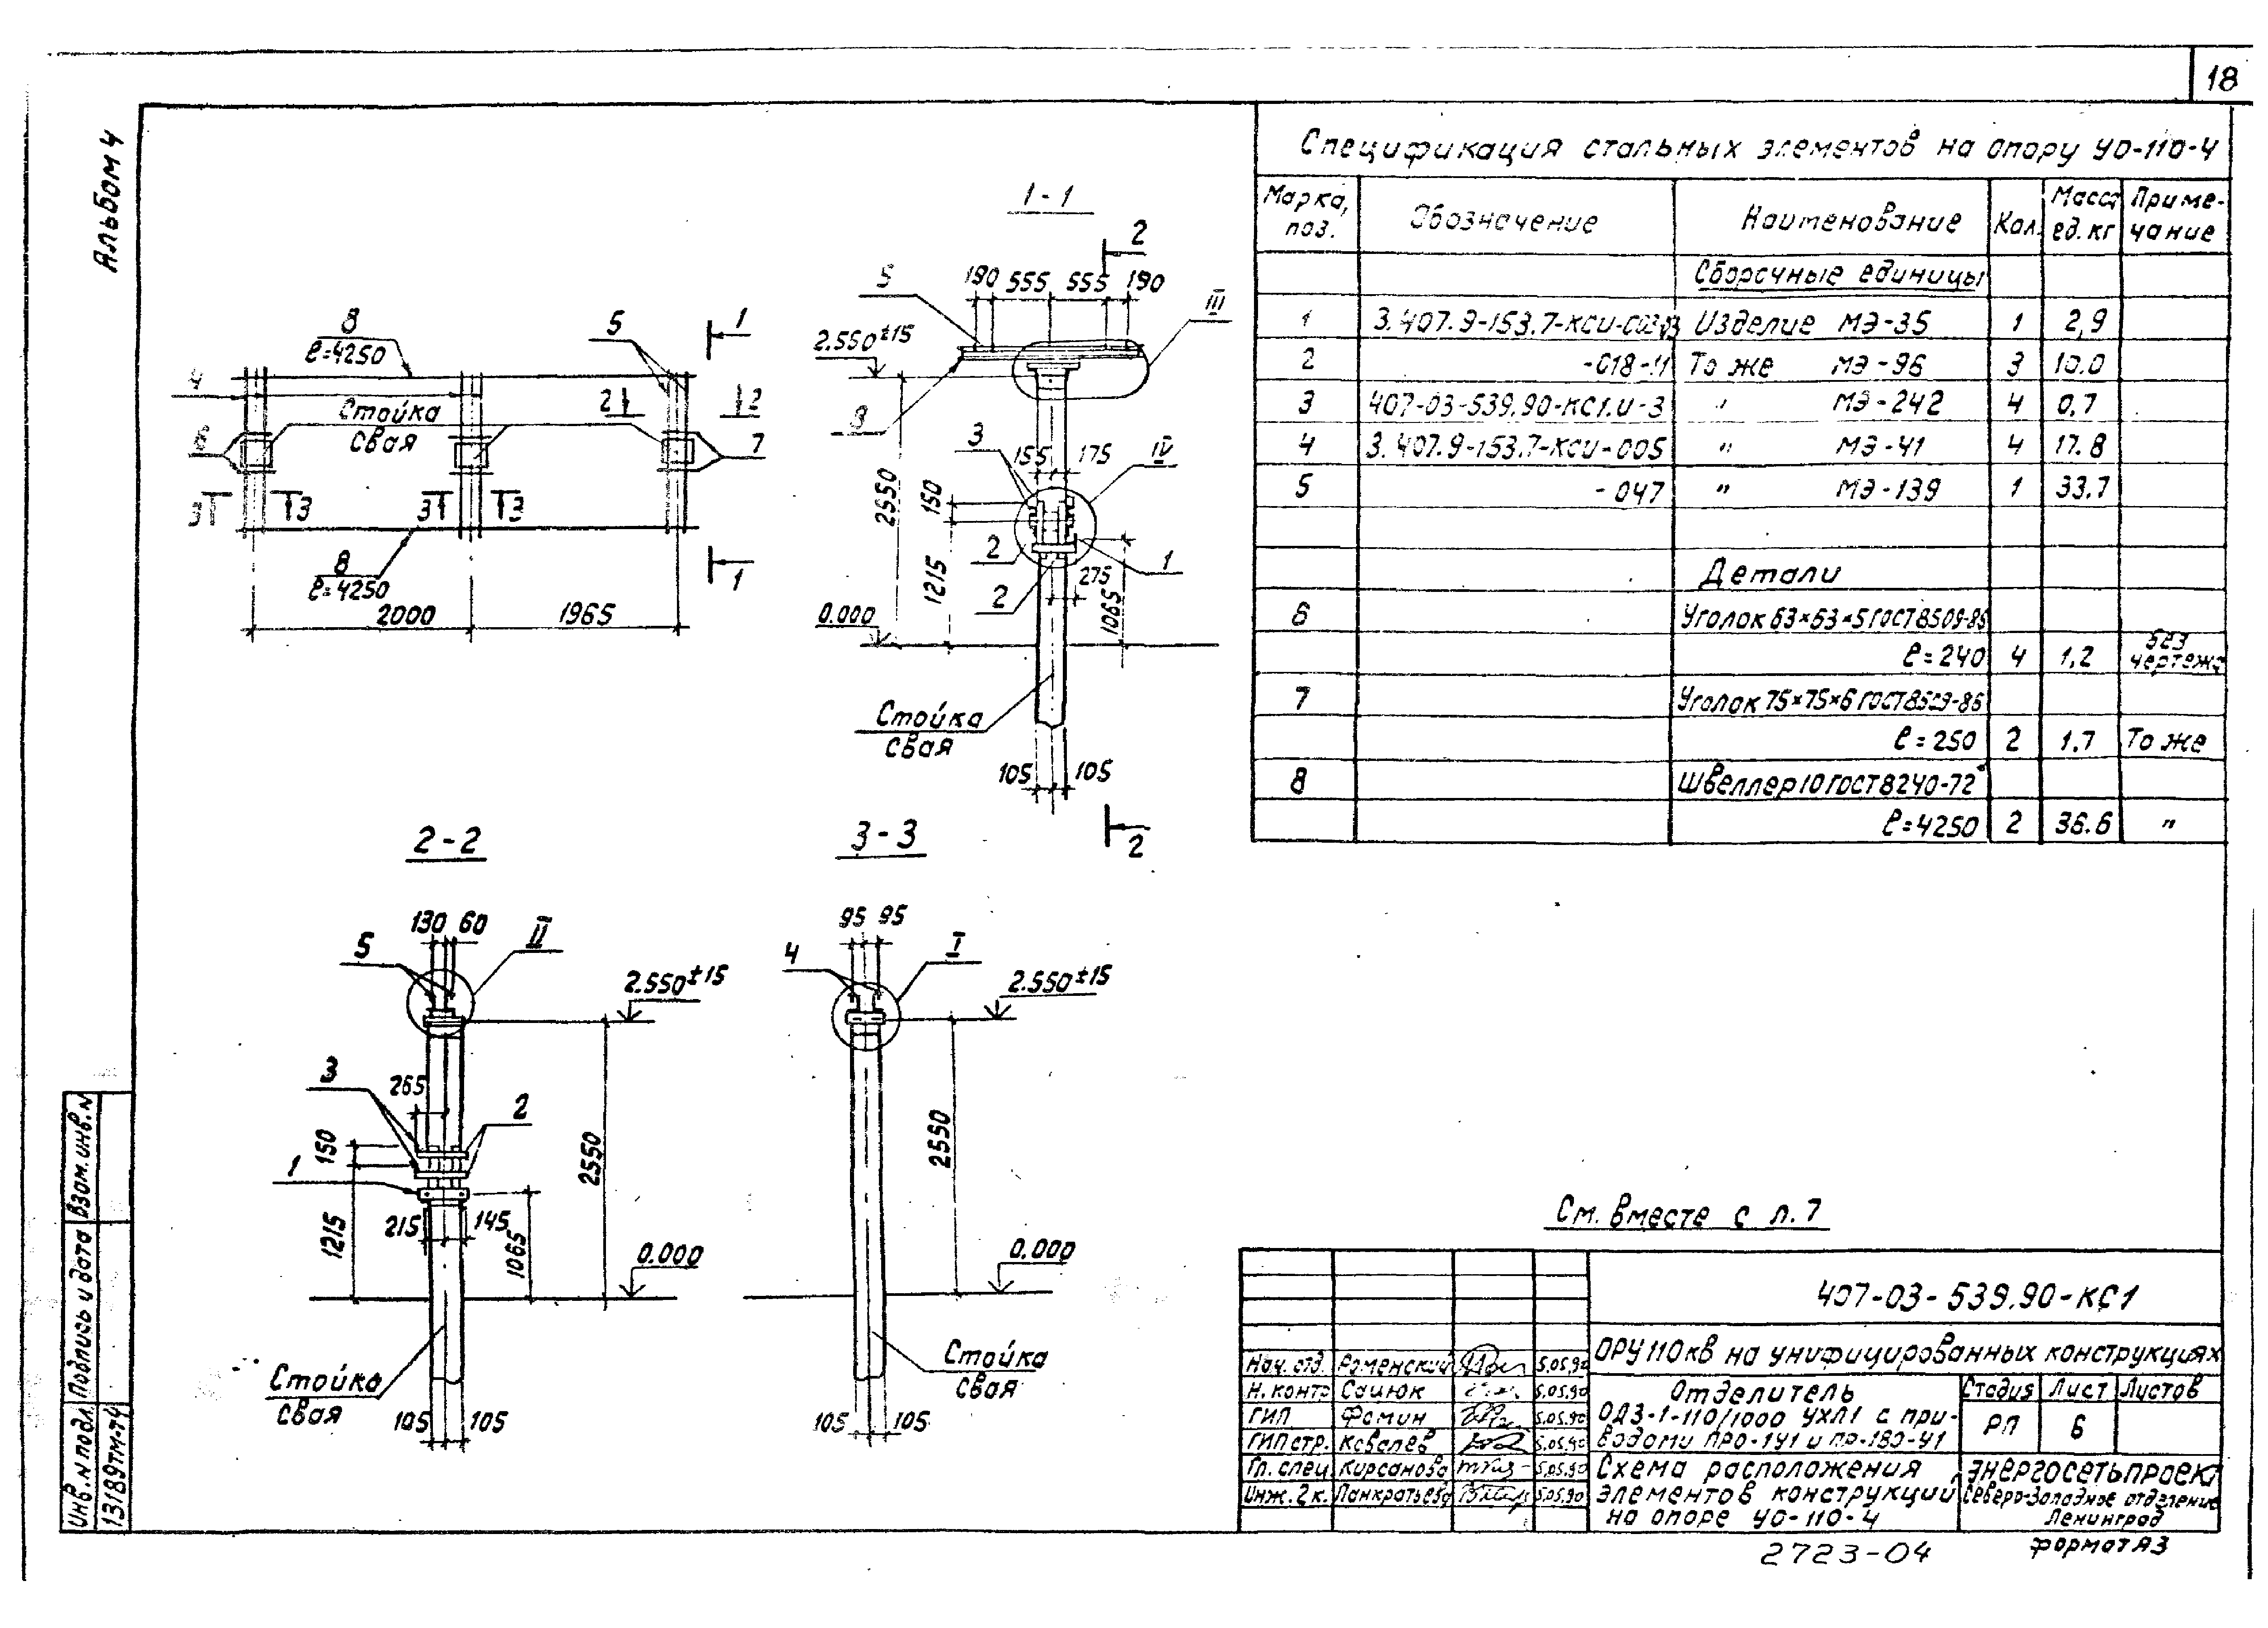 18
Альбом 4
Спецификация стальных элементов на опору УО-110-4
Марка, поз.
Обозначение
Наименование
Кол.
Масса ед. кг
Примечание
Сборочные единицы
1 Изделие МЭ-35 1 2,9
2 -018-11 То же МЭ-96 3 10.0
3 407-03-539.90-КС1.И-3 " МЭ-242 4 0,7
4 3.407.9-153.7-КСИ-005 " МЭ-41 4 17.8
5 -047 " МЭ-139 1 33.7
Детали
6 Уголок 63×63×5 ГОСТ 8509-86
ℓ=240 4 1,2 без чертежа
7 Уголок 75×75×6 ГОСТ 8509-86
ℓ=250 2 1.7 То же
8 Швеллер 10 ГОСТ 8240-72*
ℓ=4250 2 36.6 "
8
ℓ=4250
5
1
4
Стойка
свая
2
2
6
7
3 3 3 3
8
ℓ=4250
1
2000
1965
1-1
2
5
190 555 555 190
III
2.550±15
8
3
155 175
IV
2550
150
2
1
1215
2
275
1065
0.000
Стойка
свая
105 105
2
2-2
130 60
5
II
2.550±15
3
265
2
150
1
2550
1215
215 145
1065
0.000
Стойка
свая
105 105
3-3
95 95
4
I
2.550±15
2550
0.000
Стойка
свая
105 105
См. вместе с л. 7
407-03-539.90-КС1
ОРУ 110 кВ на унифицированных конструкциях
Нач. отд. Роменский 5.05.90
Н. контр Сацюк 5.05.90
ГИП Фомин 5.05.90
ГИП стр. Ковалев 5.05.90
Гл. спец Кирсанова 5.05.90
Инж. 2 к. Панкратьева 5.05.90
Отделитель
ОДЗ-1-110/1000 УХЛ1 с при-
водами ПРО-1У1 и ПР-180-У1
Стадия Лист Листов
РП 6
Схема расположения
элементов конструкций
на опоре УО-110-4
Энергосетьпроект
Северо-Западное отделение
Ленинград
2723-04
формат А3
Взам. инв. N
Подпись и дата
Инв. N подл.
13189тм-т4